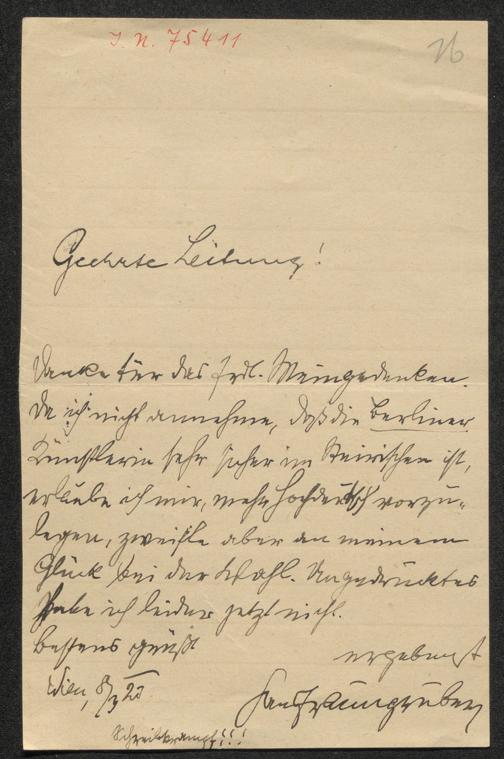 I. N. 75411
76
Geehrte Leitung!
Danke für das frdl. Meingedenken.
Da ich nicht annehme, daß die Berliner
Künstlerin sehr sicher im Steirischen ist,
erlaube ich mir, mehr Hochdeutsch vorzu-
legen, zweifle aber an meinem
Glück bei der Wahl. Ungedrucktes
habe ich leider jetzt nicht.
Bestens grüßt
ergebenst
Wien, 8/3 25.
Hans Fraungruber
Schreibkrampf!!!